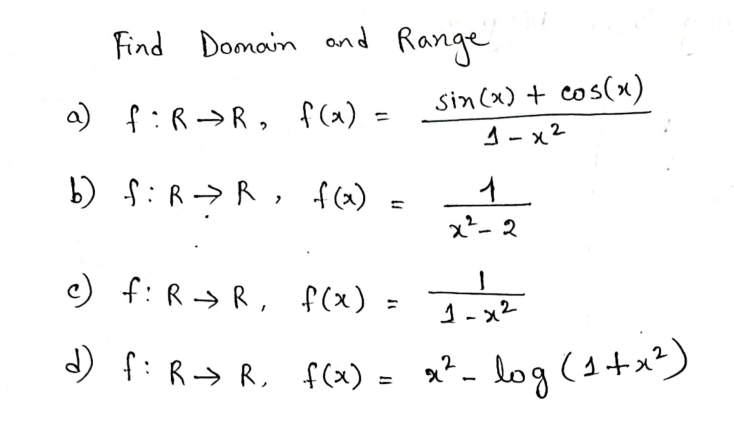 Find Domain and Range
a) f : R → R, f(x) = sin(x) + cos(x) / 1 - x²
b) f : R → R, f(x) = 1 / x² - 2
c) f : R → R, f(x) = 1 / 1 - x²
d) f : R → R, f(x) = x² - log (1 + x²)